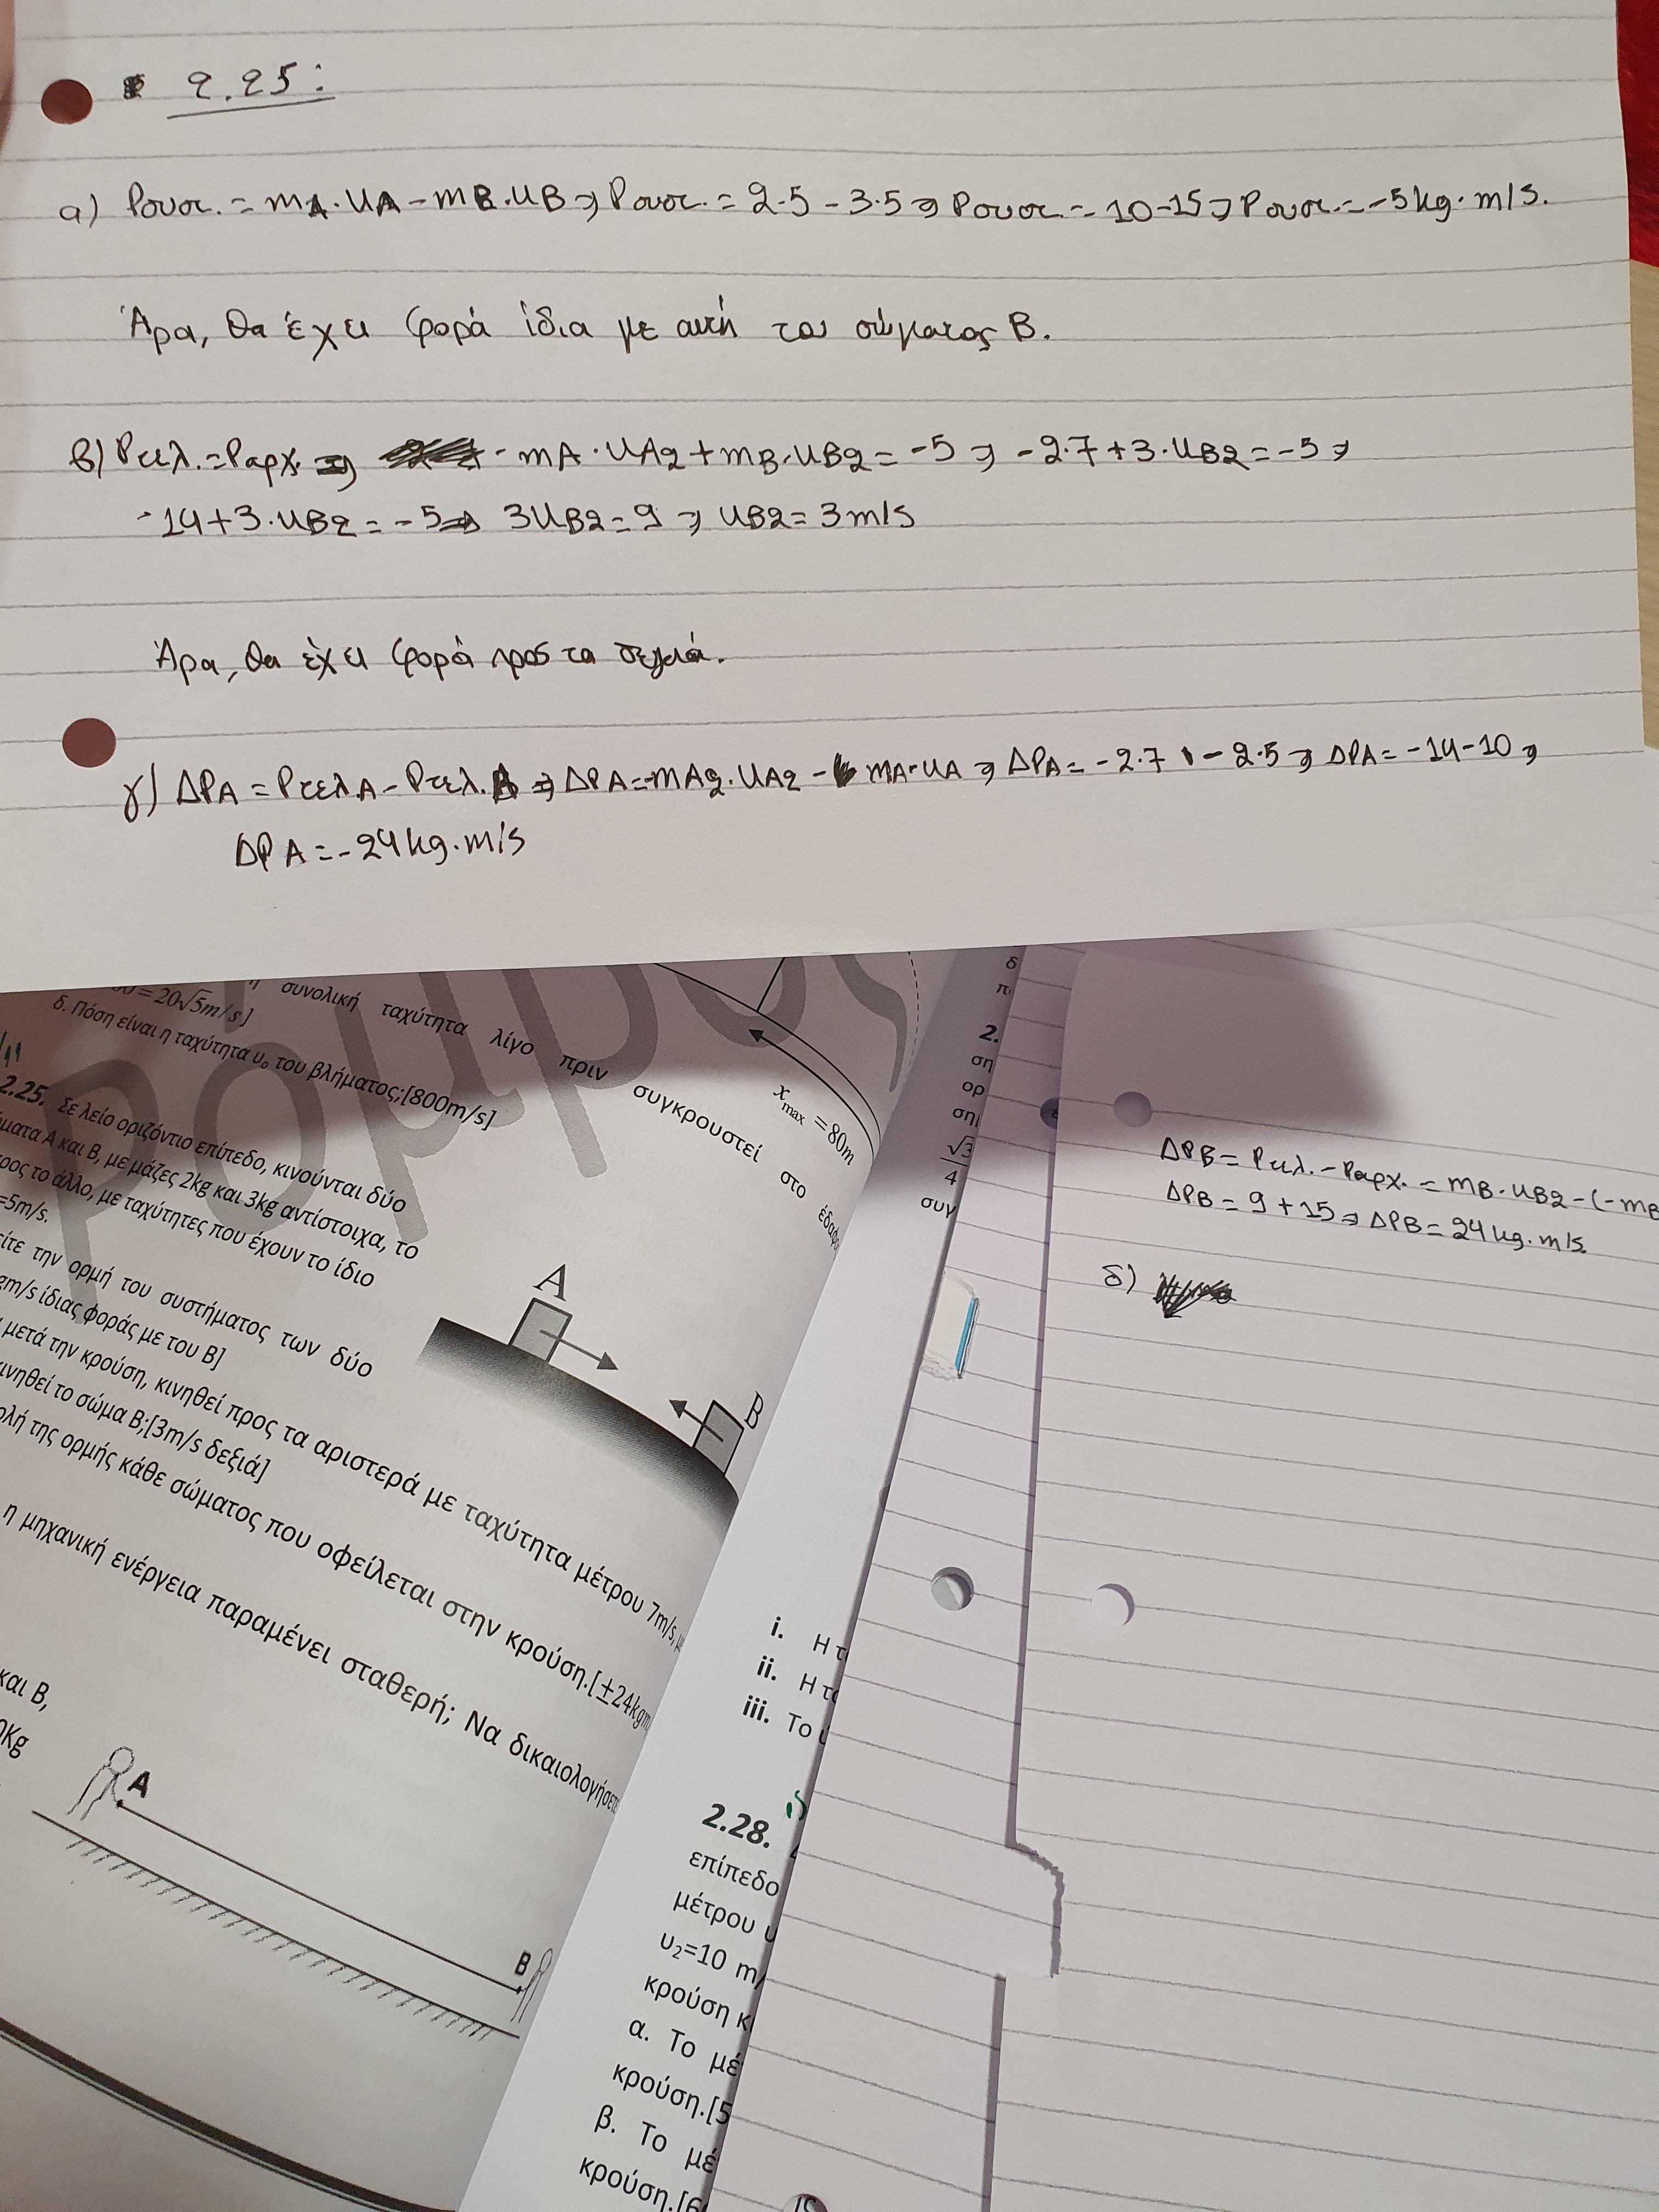 2.25:
α) Pσυστ. = mA·UA - mB·UB ⇒ Pσυστ. = 2·5 - 3·5 ⇒ Pσυστ. = 10-15 ⇒ Pσυστ. = -5kg·m/s.
Άρα, θα έχει φορά ίδια με αυτή του σώματος B.
β) Pτελ. = Pαρχ. ⇒ - mA·UA2 + mB·UB2 = -5 ⇒ -2·7 + 3·UB2 = -5 ⇒
-14 + 3·UB2 = -5 ⇒ 3UB2 = 9 ⇒ UB2 = 3m/s
Άρα, θα έχει φορά προς τα δεξιά.
γ) ΔPA = PτελA - Pτελ.A ⇒ ΔPA = -mA2·UA2 - mA·UA ⇒ ΔPA = -2·7 - 2·5 ⇒ ΔPA = -14-10 ⇒
ΔPA = -24kg·m/s
συνολική ταχύτητα λίγο πριν συγκρουστεί στο
= 20√5m/s]
δ. Πόση είναι η ταχύτητα υₒ του βλήματος;[800m/s]
xmax = 80m
2.25. Σε λείο οριζόντιο επίπεδο, κινούνται δύο
ματα Α και Β, με μάζες 2kg και 3kg αντίστοιχα, το
ρος το άλλο, με ταχύτητες που έχουν το ίδιο
=5m/s.
είτε την ορμή του συστήματος των δύο
gm/s ίδιας φοράς με του Β]
μετά την κρούση, κινηθεί προς τα αριστερά με ταχύτητα μέτρου 7m/s,
κινηθεί το σώμα Β;[3m/s δεξιά]
ολή της ορμής κάθε σώματος που οφείλεται στην κρούση.[±24kgm
η μηχανική ενέργεια παραμένει σταθερή; Να δικαιολογήσετε
A
B
και Β,
0Kg
A
B
δ
π
2.
ση
ορ
ση
√3
4
συγ
i. Η τ
ii. Η τα
iii. Το
2.28.
επίπεδο
μέτρου υ
υ₂=10 m/
κρούση κ
α. Το μέ
κρούση.[5
β. Το μέ
κρούση.[6
ΔPB = Pτελ. - Pαρχ. = mB·UB2 - (-mB
ΔPB = 9 + 15 ⇒ ΔPB = 24kg·m/s.
δ)